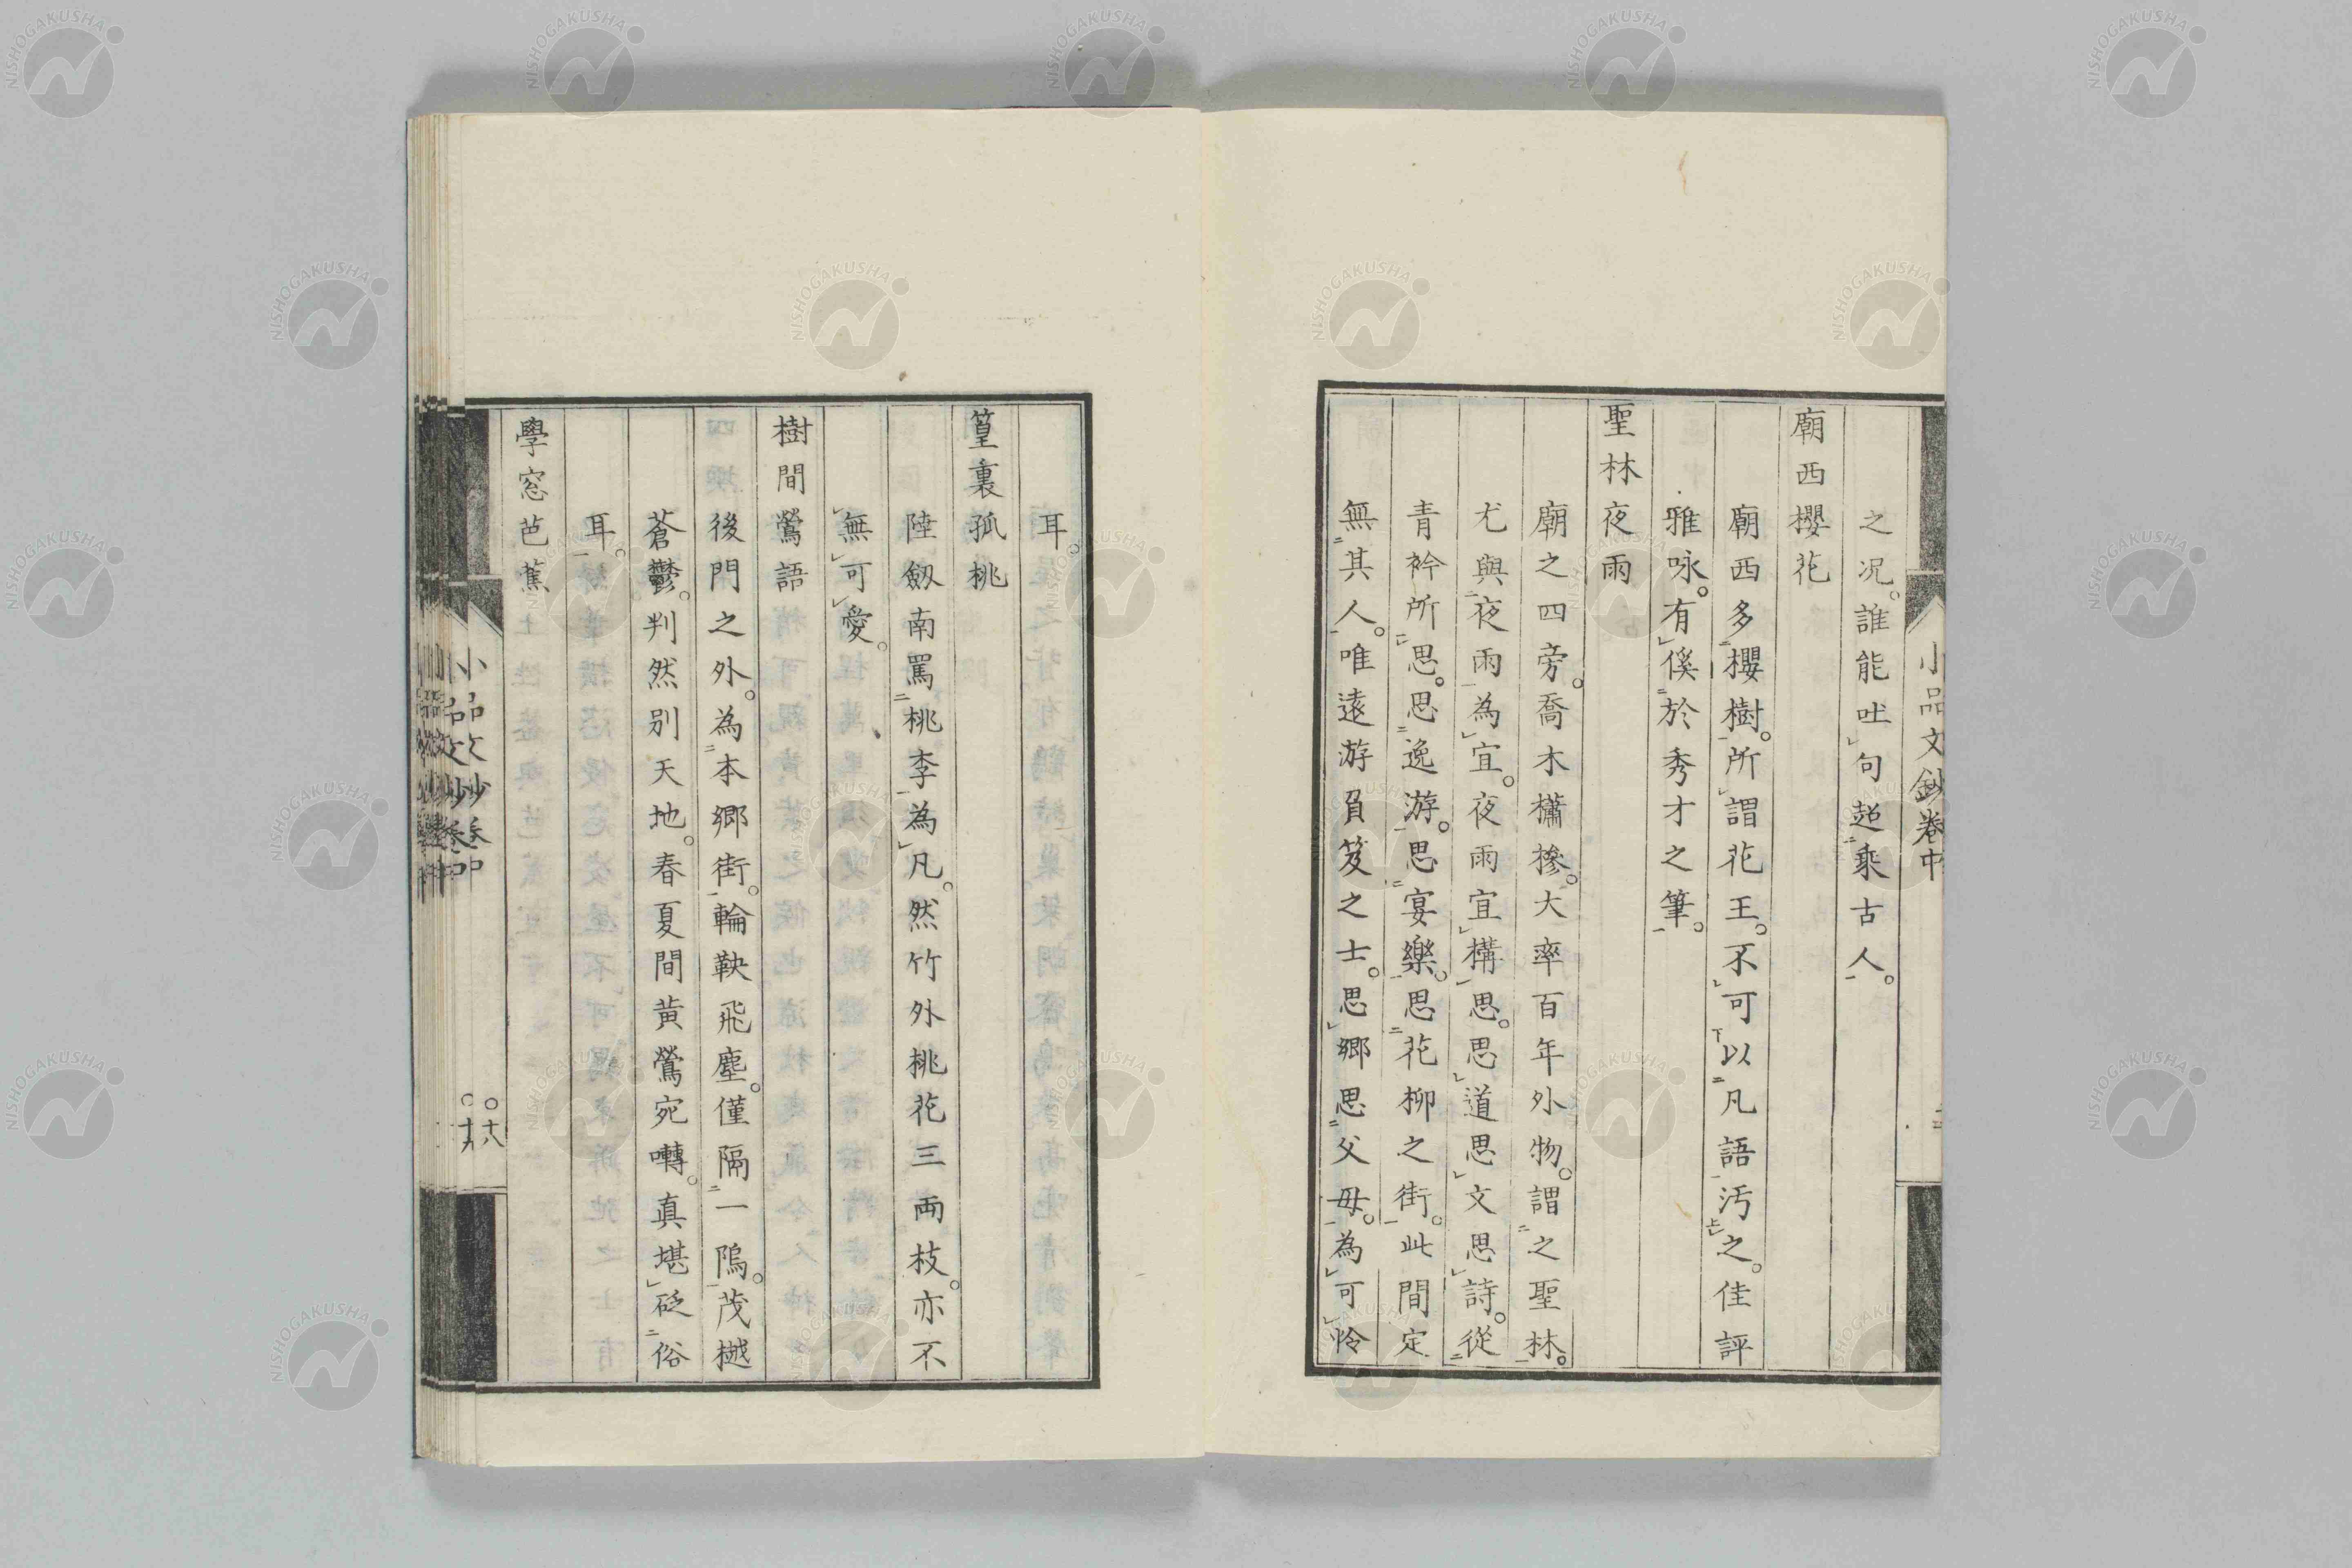 小品文鈔卷中
之况。誰能吐句超乘古人。
廟西櫻花
廟西多櫻樹。所謂花王。不可以凡語汚之。佳評
雅咏。有僕於秀才之筆。
聖林夜雨
廟之四旁。喬木橚椮。大率百年外物。謂之聖林。
尤與夜雨為宜。夜雨宜構思。思道思文思詩。從
青衿所思。思逸游。思宴樂。思花柳之街。此間定
無其人。唯遠游負笈之士。思鄉思父母。為可怜
耳。
篁裏孤桃
陸劔南罵桃李為凡。然竹外桃花三両枝。亦不
無可愛。
樹間鶯語
後門之外。為本鄉街。輪鞅飛塵。僅隔一隖。茂樾
蒼鬱。判然別天地。春夏間黃鶯宛囀。真堪砭俗
耳。
學窓芭蕉
小品文鈔卷中
十八